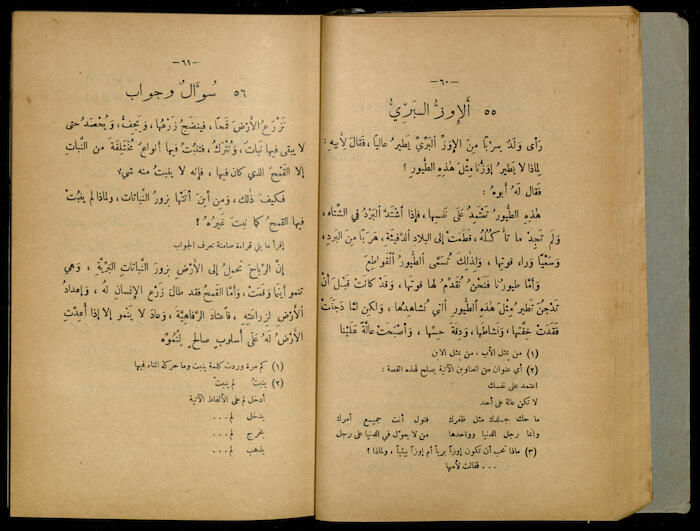 — ٦٠ —
٥٥ أَلإِوَزُّ البَرِّيُّ
رَأى وَلَدٌ سِربًا مِنَ الإِوَزِّ البَرِّيِّ يَطيرُ عاليًا ، فَقالَ لِأَبيهِ :
لِماذا لا يَطيرُ إِوَزُّنا مِثلَ هٰذِهِ الطُّيورِ ؟
فَقالَ لَهُ أَبوهُ :
هٰذِهِ الطُّيورُ تَعْتَمِدُ عَلَى نَفسِها ، فإِذا اشْتَدَّ البَرْدُ في الشِّتاءِ ،
وَلَم تَجِدْ ما تَأْكُلُهُ ، قَطَعَتْ إِلى البلادِ الدَّفيئَةِ ، هَرَبًا مِنَ البَردِ ،
وَسَعْيًا وَراءَ قوتِها ، وَلِذٰلِكَ تُسَمَّى الطُّيورُ القَواطِعَ
وَأَمّا طيورُنا فَنَحْنُ نُقَدِّمُ لها قوتَها ، وَقَد كانَت قَبلَ أَنْ
تَدْجُنَ تَطيرُ مِثلَ هٰذِهِ الطُّيورِ الَّتي تُشاهِدُها ، وَلٰكِن لَمّا دَجَنَتْ
فَقَدَتْ خِفَّتَها ، وَنَشاطَها ، وَدِقَّةَ حِسِّها ، وَأَصْبَحَت عالَةً عَلَيْنا
(١) من يمثل الأب ، من يمثل الابن
(٢) أي عنوان من العناوين الآتية يصلح لهذه القصة :
اعتمد على نفسك
لا تكن عالة على أحد
ما حك جلدك مثل ظفرك فتول أنت جميع أمرك
وانما رجل الدنيا وواحدها من لا يعول في الدنيا على رجل
(٣) ماذا تحب أن تكون إوزاً برياً أم إوزاً بيتياً ، ولماذا ؟
... فقالت لأمها
— ٦١ —
٥٦ سُؤالٌ وجواب
تُزْرَعُ الأَرْضُ قَمحًا ، فينضَجُ زَرْعُها ، وَيَجِفُّ ، وَيُحْصَدُ حتى
لا يبقى فيها نَباتٌ ، وَتُتْرَكُ ، فتنبُتُ فيها أَنواعٌ مُخْتَلِفَةٌ من النَّباتِ
إلا القَمْحَ الذي كان فيها ، فإِنه لا ينبتُ منه شيءٌ
فكيفَ ذٰلك ، ومن أينَ أتتها بزورُ النَّباتاتِ ، ولماذا لم ينبُتْ
فيها القمحُ كما نبتَ غَيرُهُ ؟
إقرأ ما يلي قراءة صامتة تعرف الجواب
إنَّ الرِّياحَ تحملُ إلى الأَرْضِ بزورَ النَّباتاتِ البَرِّيَّةِ ، وهي
تنمو أَينما وَقَعَتْ ، وأَمّا القَمحُ فقد طالَ زَرْعُ الإنسانِ لهُ ، وإعدادُه
الأَرْضَ لِزِراعَتِهِ ، فاعتادَ الرَّفاهِيَّةَ ، وَعادَ لا يَنمُو إلا إذا أُعِدَّتِ
الأَرْضُ لَهُ عَلَى أُسلوبٍ صالحٍ لِنُمُوِّه
(١) كم مرة وردت كلمة ينبت وما حركة التاء فيها
(٢) ينبتُ لم ينبتْ
أدخل لم على الألفاظ الآتية
يدخل لم ...
يخرج لم ...
يذهب لم ...